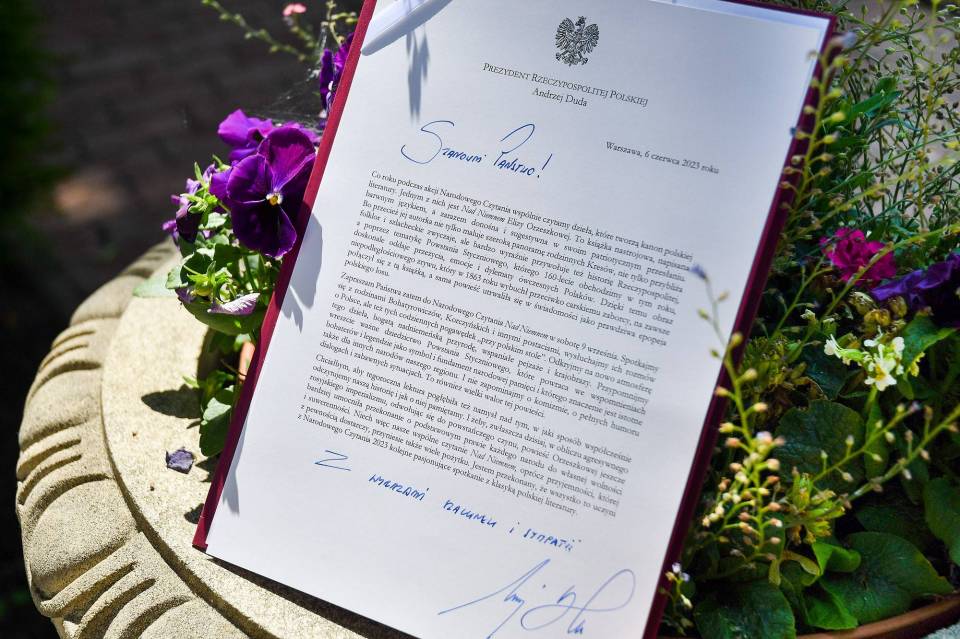 PREZYDENT RZECZYPOSPOLITEJ POLSKIEJ
Andrzej Duda
Warszawa, 6 czerwca 2023 roku
Szanowni Państwo!
Co roku podczas akcji Narodowego Czytania wspólnie czytamy dzieła, które tworzą kanon polskiej
literatury. Jednym z nich jest Nad Niemnem Elizy Orzeszkowej. To książka nastrojowa, napisana
barwnym językiem, a zarazem doniosła i sugestywna w swoim patriotycznym przesłaniu.
Bo przecież jej autorka nie tylko maluje szeroką panoramę rodzinnych Kresów, nie tylko przybliża
folklor i szlacheckie zwyczaje, ale bardzo wyraźnie przywołuje też historię Rzeczypospolitej,
poprzez tematykę Powstania Styczniowego, którego 160-lecie obchodzimy w tym roku,
doskonale oddaje przeżycia, emocje i dylematy ówczesnych Polaków. Dzięki temu obraz
niepodległościowego zrywu, który w 1863 roku wybuchł przeciwko carskiemu zaborcy, na zawsze
połączył się z tą książką, a sama powieść utrwaliła się w świadomości jako prawdziwa epopeja
polskiego losu.
Zapraszam Państwa zatem do Narodowego Czytania Nad Niemnem w sobotę 9 września. Spotkajmy
się z rodzinami Bohatyrowiczów, Korczyńskich i innymi postaciami, wysłuchajmy ich rozmów
o Polsce, ale też tych codziennych pogawędek „przy polskim stole”. Odkryjmy na nowo atmosferę
tego dzieła, bogatą nadniemeńską przyrodę, wspaniałe pejzaże i krajobrazy. Przypomnijmy
wreszcie ważne dziedzictwo Powstania Styczniowego, które powraca we wspomnieniach
bohaterów i legendzie jako symbol i fundament narodowej pamięci i którego znaczenie jest istotne
także dla innych narodów naszego regionu. I nie zapominajmy o komizmie, o pełnych humoru
dialogach i zabawnych sytuacjach. To również wielki walor tej powieści.
Chciałbym, aby tegoroczna lektura pogłębiła też namysł nad tym, w jaki sposób współcześnie
odczytujemy naszą historię i jak o niej pamiętamy. I żeby, zwłaszcza dzisiaj, w obliczu agresywnego
rosyjskiego imperializmu, odwołując się do powstańczego czynu, powieść Orzeszkowej jeszcze
bardziej umocniła przekonanie o podstawowym prawie każdego narodu do własnej wolności
i suwerenności. Niech więc nasze wspólne czytanie Nad Niemnem, oprócz przyjemności, której
z pewnością dostarczy, przyniesie także wiele pożytku. Jestem przekonany, że wszystko to uczyni
z Narodowego Czytania 2023 kolejne pasjonujące spotkanie z klasyką polskiej literatury.
Z wyrazami szacunku i sympatii